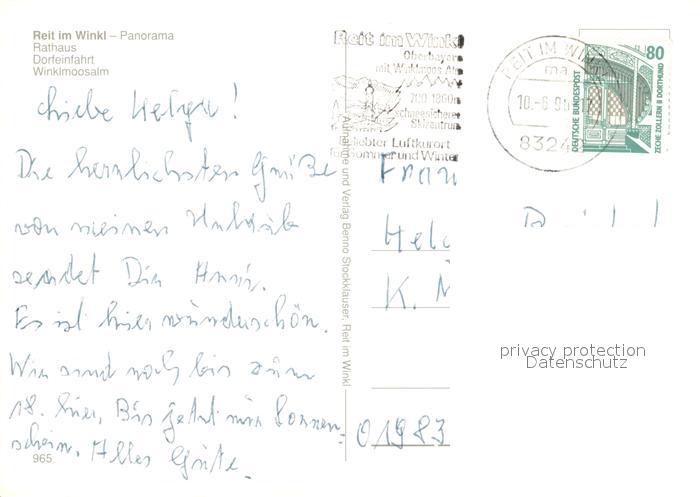 Reit im Winkl – Panorama
Rathaus
Dorfeinfahrt
Winklmoosalm
Liebe Helga!
Die herzlichsten Grüße
von meinem Urlaub
sendet Dir Anni.
Es ist hier wunderschön.
Wir sind noch bis zum
18. hier, Bis jetzt nur Sonnen-
schein. Alles Gute.
965
Aufnahme und Verlag Benno Stockklauser, Reit im Winkl
Reit im Winkl
Oberbayern
mit Winklmoos Alm
700-1860m
Schneesicheres
Skizentrum
beliebter Luftkurort
für Sommer und Winter
REIT IM WIN
ma
10.-6.9
8324
80
DEUTSCHE BUNDESPOST
ZECHE ZOLLERN II DORTMUND
Frau
Hel
K.
O 1983
privacy protection
Datenschutz